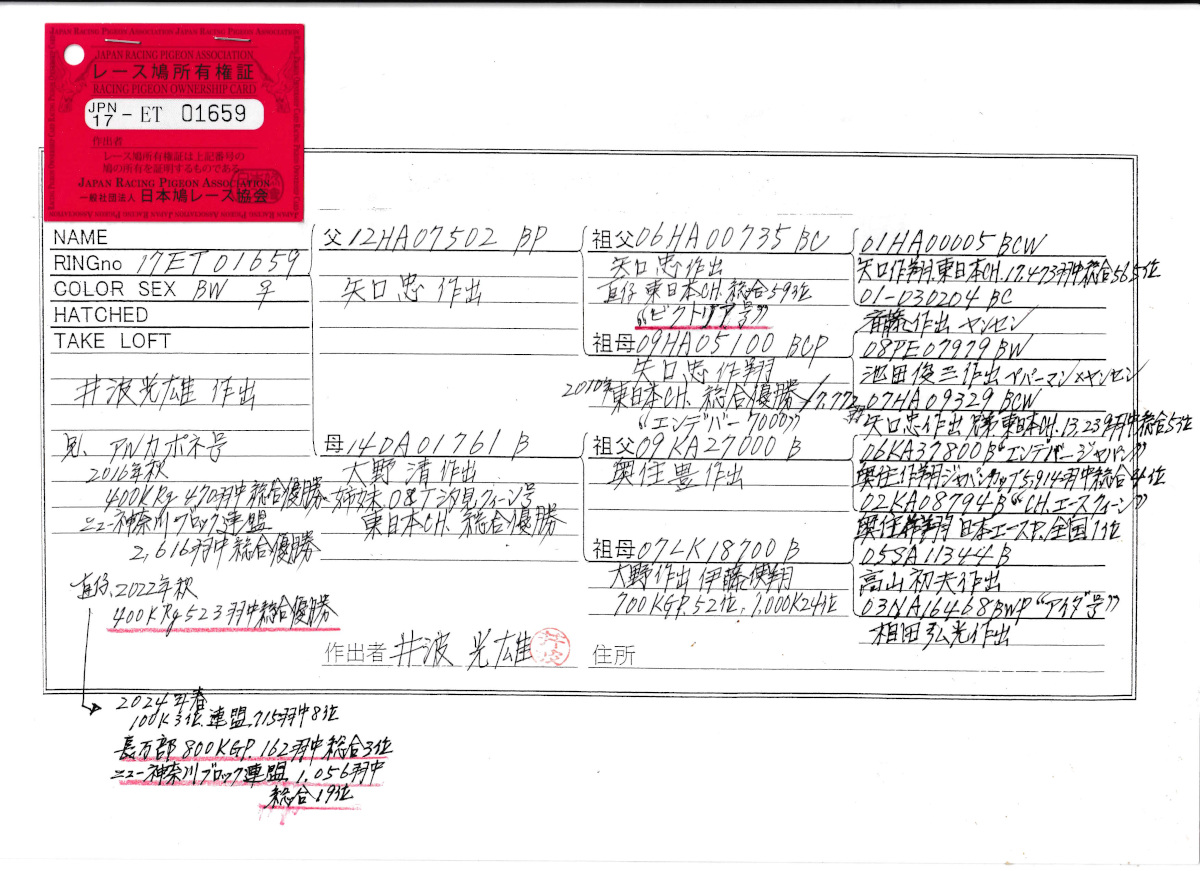 JAPAN RACING PIGEON ASSOCIATION
レース鳩所有権証
RACING PIGEON OWNERSHIP CARD
JPN 17 - ET 01659
作出者
レース鳩所有権証は上記番号の
鳩の所有を証明するものである
JAPAN RACING PIGEON ASSOCIATION
一般社団法人 日本鳩レース協会
NAME
RINGno 17ET01659
COLOR SEX BW ♀
HATCHED
TAKE LOFT
井波光雄 作出
兄、アルカポネ号
2016年秋
400KRg 470羽中総合優勝
ニュー神奈川ブロック連盟
2,616羽中総合優勝
直仔、2022年秋
400KRg 523羽中総合優勝
父 12HA07502 BP
矢口忠 作出
母 14DA01761 B
大野清作出
姉妹 08 汐見クィーン号
東日本CH. 総合優勝
祖父 06HA00735 BC
矢口忠 作出
直仔 東日本CH. 総合59位
"ビクトリア号"
祖母 09HA05100 BCP
矢口忠作翔
2010年東日本CH. 総合優勝
"エンデバー7000"
祖父 09KA27000 B
奥住豊作出
祖母 07LK18700 B
大野作出 伊藤使翔
700KGP.52位, 1,000K24位
01HA00005 BCW
矢口作翔.東日本CH.17.473羽中総合565位
01-030204 BC
斉藤作出 ヤンセン
08PE07979 BW
池田俊三作出 ペパーマン×ヤンセン
07HA09329 BCW
矢口忠作出 東日本CH.13.239羽中総合5位
06KA37800B "エンデバージャパン"
奥住作翔ジャパンカップ5,914羽中総合4位
02KA08794B "CH.エースクィーン"
奥住作翔 日本エースP.全国1位
05SA11344 B
高山初夫作出
03NA16468BWP "アイダ号"
相田弘光作出
作出者 井波 光雄
井波
住所
2024年春
100K3位.連盟.715羽中8位
長万部800KGP.162羽中総合3位
ニュー神奈川ブロック連盟.1.056羽中
総合19位